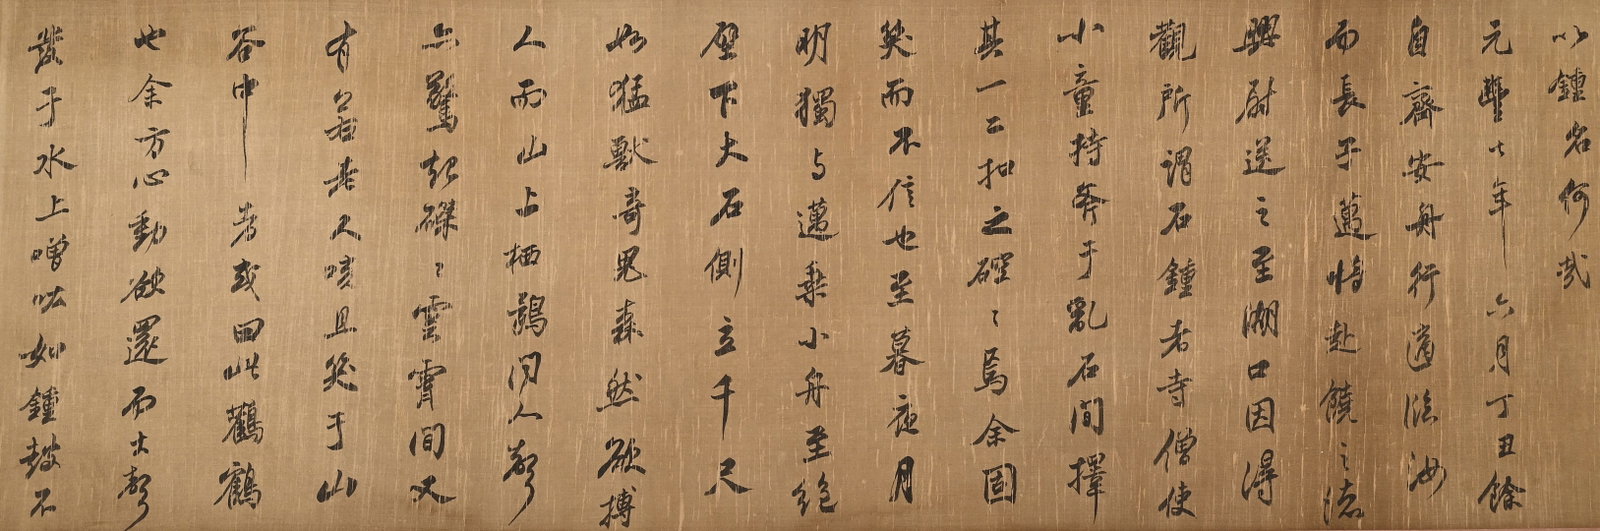 以鍾名何哉
元豐七年六月丁丑餘
自齊安舟行適臨汝
而長子邁將赴饒之德
興尉送之至湖口因得
觀所謂石鍾者寺僧使
小童持斧于亂石間擇
其一二扣之硿〻焉余固
笑而不信也至暮夜月
明獨与邁乘小舟至絕
壁下大石側立千尺
如猛獸奇鬼森然欲搏
人而山上栖鶻聞人聲
亦驚起磔〻雲霄間又
有若老人咳且笑于山
谷中者或曰此鸛鶴
也余方心動欲還而大聲
發于水上噌吰如鍾鼓不